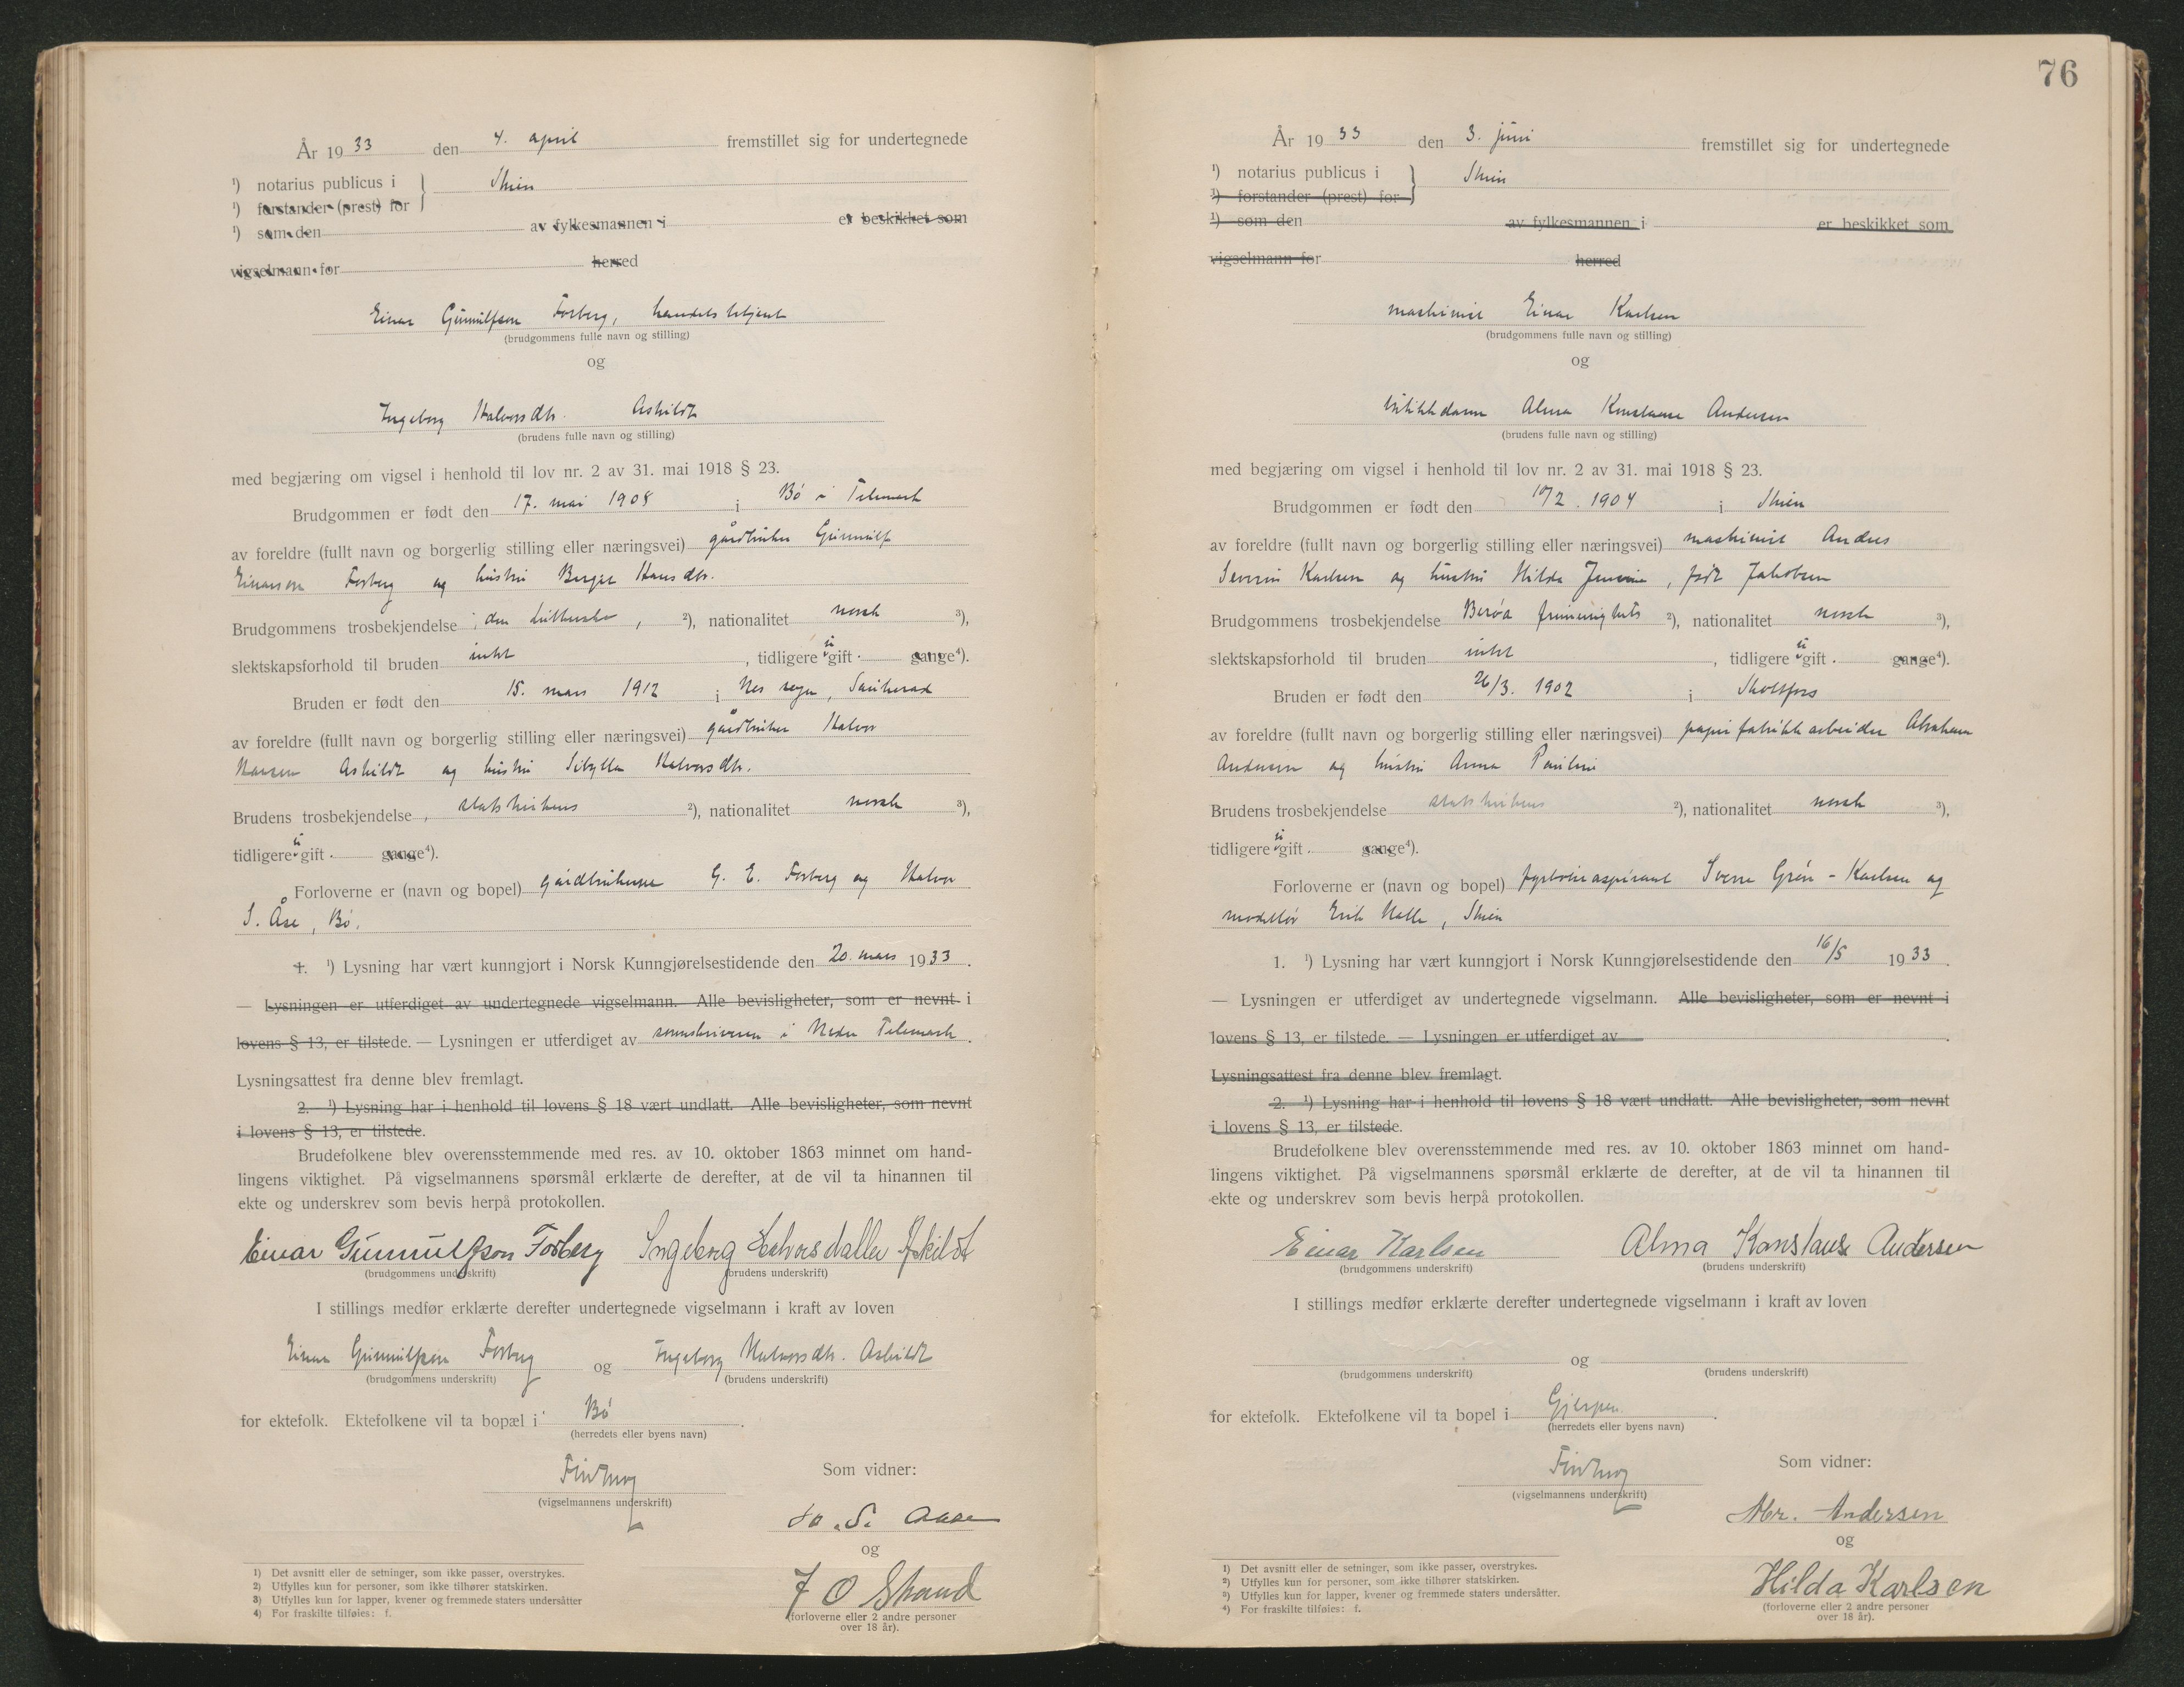 År 1933 den 4. april fremstillet sig for undertegnede
¹) notarius publicus i Skien
¹) forstander (prest) for
¹) som den av fylkesmannen i er beskikket som
vigselmann for herred
Einar Gunnulfson Forberg, handelsbetjent
(brudgommens fulle navn og stilling)
og
Ingeborg Halvorsdtr. Askildt
(brudens fulle navn og stilling)
med begjæring om vigsel i henhold til lov nr. 2 av 31. mai 1918 § 23.
Brudgommen er født den 17. mai 1908 i Bø i Telemark
av foreldre (fullt navn og borgerlig stilling eller næringsvei) gårdbruker Gunnulf
Einarson Forberg og hustru Bergit Hansdtr.
Brudgommens trosbekjendelse den lutherske, ²), nationalitet norsk ³),
slektskapsforhold til bruden intet, tidligere ugift gange⁴).
Bruden er født den 15. mars 1912 i Nes sogn, Sauherad
av foreldre (fullt navn og borgerlig stilling eller næringsvei) gårdbruker Halvor
Hansen Askildt og hustru Sibylla Halvorsdtr.
Brudens trosbekjendelse, statskirkens ²), nationalitet norsk ³),
tidligere ugift gange⁴).
Forloverne er (navn og bopel) gårdbrukerne G. E. Forberg og Halvor
S. Åse, Bø.
1. ¹) Lysning har vært kunngjort i Norsk Kunngjørelsestidende den 20. mars 1933.
— Lysningen er utferdiget av undertegnede vigselmann. Alle bevisligheter, som er nevnt i
lovens § 13, er tilstede. — Lysningen er utferdiget av sorenskriveren i Nedre Telemark.
Lysningsattest fra denne blev fremlagt.
2. ¹) Lysning har i henhold til lovens § 18 vært undlatt. Alle bevisligheter, som nevnt
i lovens § 13, er tilstede.
Brudefolkene blev overensstemmende med res. av 10. oktober 1863 minnet om hand-
lingens viktighet. På vigselmannens spørsmål erklærte de derefter, at de vil ta hinannen til
ekte og underskrev som bevis herpå protokollen.
Einar Gunnulfson Forberg Ingeborg Halvorsdatter Askildt
(brudgommens underskrift) (brudens underskrift)
I stillings medfør erklærte derefter undertegnede vigselmann i kraft av loven
Einar Gunnulfson Forberg og Ingeborg Halvorsdtr. Askildt
(brudgommens underskrift) (brudens underskrift)
for ektefolk. Ektefolkene vil ta bopæl i Bø.
(herredets eller byens navn)
Som vidner:
(vigselmannens underskrift)
H. S. Aase
og
J O Strand
(forloverne eller 2 andre personer
over 18 år).
1) Det avsnitt eller de setninger, som ikke passer, overstrykes.
2) Utfylles kun for personer, som ikke tilhører statskirken.
3) Utfylles kun for lapper, kvener og fremmede staters undersåtter
4) For fraskilte tilføies: f.
76
År 1933 den 3. juni fremstillet sig for undertegnede
¹) notarius publicus i Skien
¹) forstander (prest) for
¹) som den av fylkesmannen i er beskikket som
vigselmann for herred
maskinist Einar Karlsen
(brudgommens fulle navn og stilling)
og
butikkdame Alma Konstanse Andersen
(brudens fulle navn og stilling)
med begjæring om vigsel i henhold til lov nr. 2 av 31. mai 1918 § 23.
Brudgommen er født den 10/2. 1904 i Skien
av foreldre (fullt navn og borgerlig stilling eller næringsvei) maskinist Anders
Severin Karlsen og hustru Hilda, født Jakobsen
Brudgommens trosbekjendelse Berøa frimenighets ²), nationalitet norsk ³),
slektskapsforhold til bruden intet, tidligere ugift gange⁴).
Bruden er født den 26/3. 1902 i Skotfoss
av foreldre (fullt navn og borgerlig stilling eller næringsvei) papirfabrikkarbeider Abraham
Andersen og hustru Anna Pauline
Brudens trosbekjendelse statskirkens ²), nationalitet norsk ³),
tidligere ugift gange⁴).
Forloverne er (navn og bopel) fyrbøteraspirant Sverre Grøn-Karlsen og
modellør Erik Halle, Skien
1. ¹) Lysning har vært kunngjort i Norsk Kunngjørelsestidende den 16/5 1933.
— Lysningen er utferdiget av undertegnede vigselmann. Alle bevisligheter, som er nevnt i
lovens § 13, er tilstede. — Lysningen er utferdiget av .
Lysningsattest fra denne blev fremlagt.
2. ¹) Lysning har i henhold til lovens § 18 vært undlatt. Alle bevisligheter, som nevnt
i lovens § 13, er tilstede.
Brudefolkene blev overensstemmende med res. av 10. oktober 1863 minnet om hand-
lingens viktighet. På vigselmannens spørsmål erklærte de derefter, at de vil ta hinannen til
ekte og underskrev som bevis herpå protokollen.
Einar Karlsen Alma Konstanse Andersen
(brudgommens underskrift) (brudens underskrift)
I stillings medfør erklærte derefter undertegnede vigselmann i kraft av loven
og
(brudgommens underskrift) (brudens underskrift)
for ektefolk. Ektefolkene vil ta bopel i Gjerpen.
(herredets eller byens navn)
Som vidner:
(vigselmannens underskrift)
Abr. Andersen
og
Hilda Karlsen
(forloverne eller 2 andre personer
over 18 år).
1) Det avsnitt eller de setninger, som ikke passer, overstrykes.
2) Utfylles kun for personer, som ikke tilhører statskirken.
3) Utfylles kun for lapper, kvener og fremmede staters undersåtter.
4) For fraskilte tilføies: f.